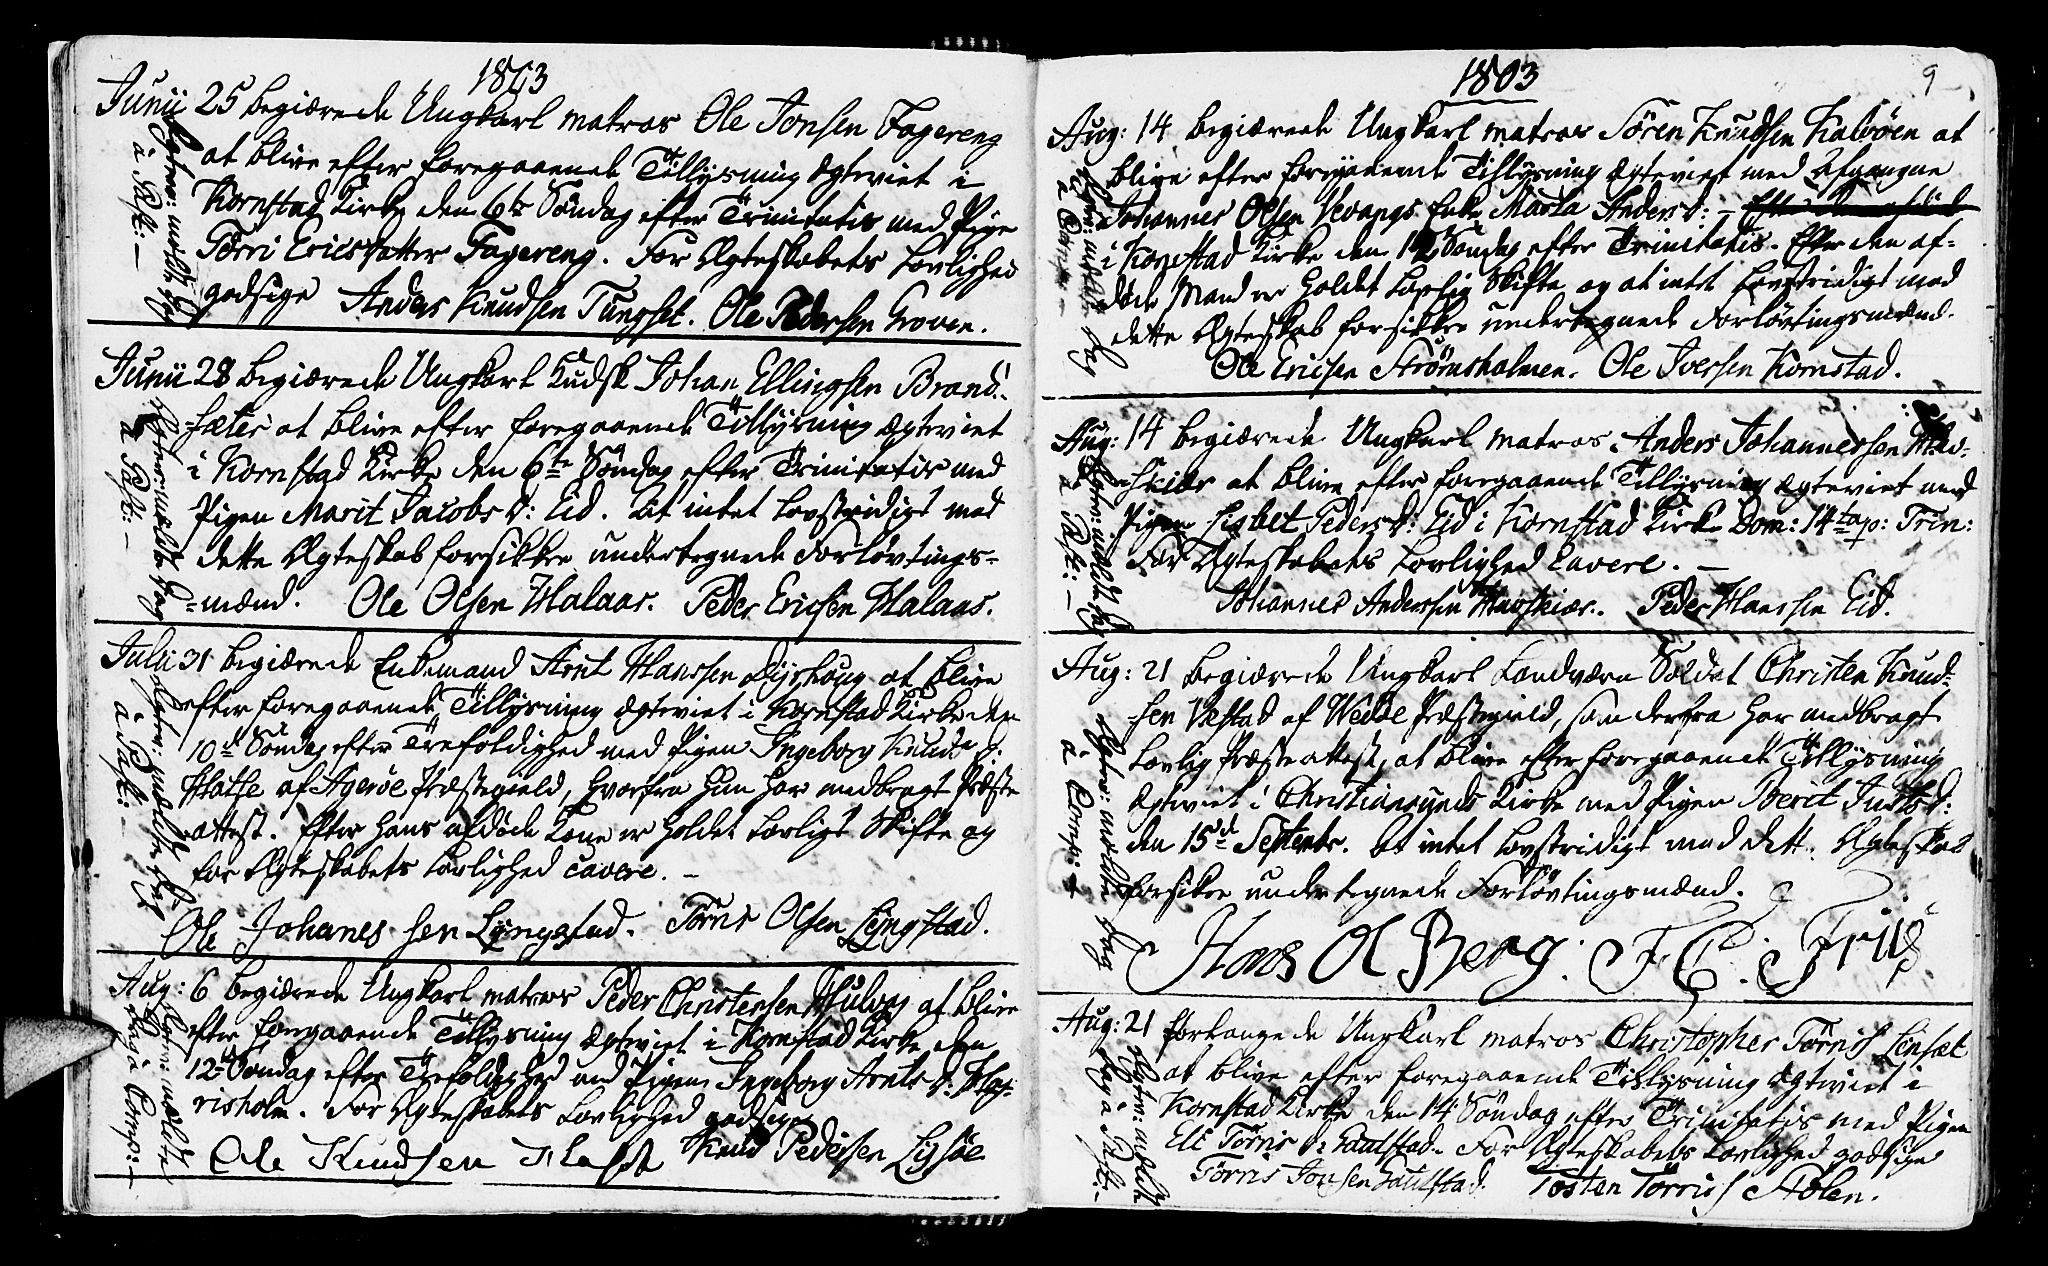 1803
Junii 25 begiærede Ungkarl matros Ole Jonsen Fagereng
at blive efter foregaaende Tillysning ægteviet i
Kornstad Kirke den 6te Søndag efter Trinitatis med Pige
Torri Ericsdatter Fagereng. For Ægteskabets Lovlighed
godsige Anders Knudsen Tungset. Ole Pedersen Groven.
à Past: —
Junii 28 begiærede Ungkarl Kudsk Johan Ellingsen Brand-
-sæter at blive efter foregaaende Tillysning ægteviet
i Kornstad Kirke den 6te Søndag efter Trinitatis med
Pigen Marit Jacobs d: Eid. At intet Lovstridigt med
dette Ægteskab forsikkre undertegnede Forlovtings-
-mænd. Ole Olsen Halaas. Peder Ericsen Halaas.
à Past: —
Julii 31 begiærede Enkemand Arnt Hanssen Dyrhoug at blive
efter foregaaende Tillysning ægteviet i Kornstad Kirke den
10de Søndag efter Trefoldighed med Pigen Ingeborg Knuds d:
af Agerøe Præstegield, hvorfra hun har medbragt Præste
attest. Efter hans afdøde Kone er holdet Lovligt Skifte og
for Ægteskabets Lovlighed cavere. —
Ole Johanes sen Lyngstad. Tørris Olsen Lyngstad.
à Past: —
Aug: 6 begiærede Ungkarl matros Peder Christensen Hulvag at blive
efter foregaaende Tillysning ægteviet i Kornstad Kirke den
12te Søndag efter Trefoldighed med Pigen Ingeborg Arnts d:
risholm. For Ægteskabets Lovlighed godsige
Ole Knudsen Knud Pedersen Lyssøe
1803
9
Aug: 14 begiærede Ungkarl matros Søren Knudsen Kalvøen at
blive efter foregaaende Tillysning ægteviet med Afgangne
Johannes Olsen Vevangs Enke Marta Anders d: —
i Kornstad Kirke den 12 Søndag efter Trinitatis. Efter den af-
døde Mand er holdet Lovlig Skifte og at intet Lovstridigt med
dette Ægteskab forsikkre undertegnede Forlovtingsmænd.
Ole Ericsen Strømsholmen. Ole Iversen Kornstad.
Aug: 14 begiærede Ungkarl matros Anders Johannessen Hav-
-skiær at blive efter foregaaende Tillysning ægteviet med
Pigen Lisbet Peders d: Eid i Kornstad Kirke Dom: 14ta p: Trin:
For Ægteskabets Lovlighed cavere. —
Johannes Anderssen Havskiær. Peder Hanssen Eid.
à Past: —
Aug: 21 begiærede Ungkarl Landværn Soldat Christen Knud-
-sen Vestad af Wedøe Præstegield, som derfra har medbragt
Lovlig Præsteattest, at blive efter foregaaende Tillysning
ægteviet i Christiansunds Kirke med Pigen Berit Justs d:
den 15de Septembr. At intet Lovstridigt med dette Ægteskab
forsikre undertegnede Forlovtingsmænd.
Hans Ol Berg. F. C. Friis
Aug: 21 forlangede Ungkarl matros Christopher Tørris Linsæt
at blive efter foregaaende Tillysning ægteviet i
Kornstad Kirke den 14 Søndag efter Trinitatis med Pigen
Eli Tørris d: Gaulstad. For Ægteskabets Lovlighed godsige
Tørris Jonsen Gaulstad. Tosten Tørris Stølen.